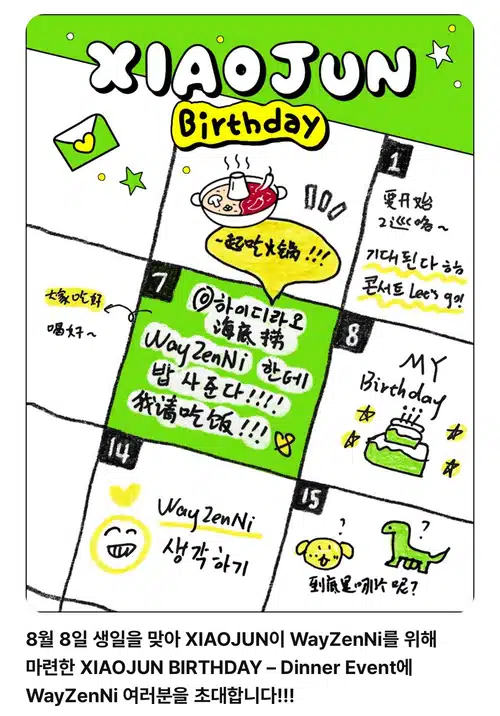 XIAOJUN
Birthday
1
要开始
2巡咯~
기대된다 ㅎㅎ
콘서트 Lee's g?!
一起吃火锅!!!
7
@하이디라오
海底捞
WayZenNi 한테
밥 사준다!!!!
我请吃饭!!!
大家吃好
喝好~
8
MY
Birthday
14
WayZenNi
생각하기
15
?
?
到底是哪片呢?
8월 8일 생일을 맞아 XIAOJUN이 WayZenNi를 위해
마련한 XIAOJUN BIRTHDAY – Dinner Event에
WayZenNi 여러분을 초대합니다!!!